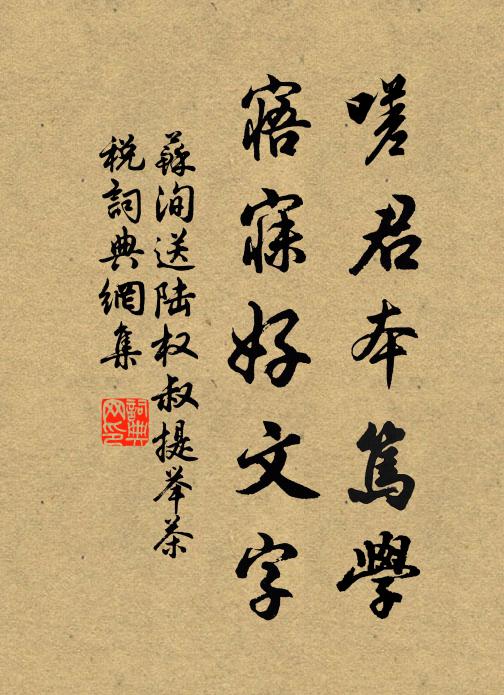 嗟君本篤學
寤寐好文字
蘇洵送陆权叔提举茶
税詞典網集
詞典
网印